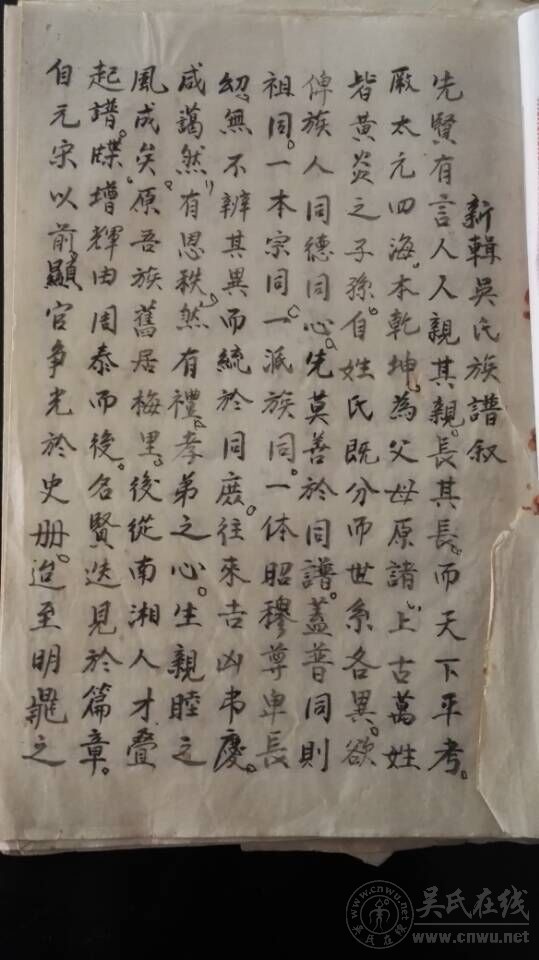 新輯吳氏族譜叙
先賢有言人人親其親。長其長。而天下平考。
厥太元四海。本乾坤。為父母原諸上古萬姓
皆黃炎之子孫。自姓氏既分而世系各異。欲
俾族人同德同心。先莫善於同譜。蓋普同則
祖同。一本宗同。一派族同。一体昭穆尊卑長
幼。無不辨其異而統於同度。往來吉凶弔慶。
咸藹然有恩秩然有禮。孝弟之心。生親睦之
風成矣。原吾族舊居梅里。後從南湘人才疊
起譜。牒增輝由周泰而後。名賢迭見於篇章。
自元宋以前。顯官争光於史册。迨至明鼂之
吴氏在线
www.cnwu.net
WWW.CNWU.NET
吴氏在线